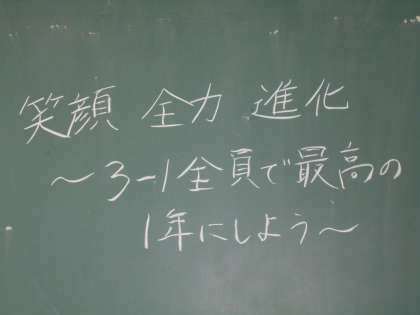 笑顔 全力 進化
～3-1全員で最高の
1年にしよう～